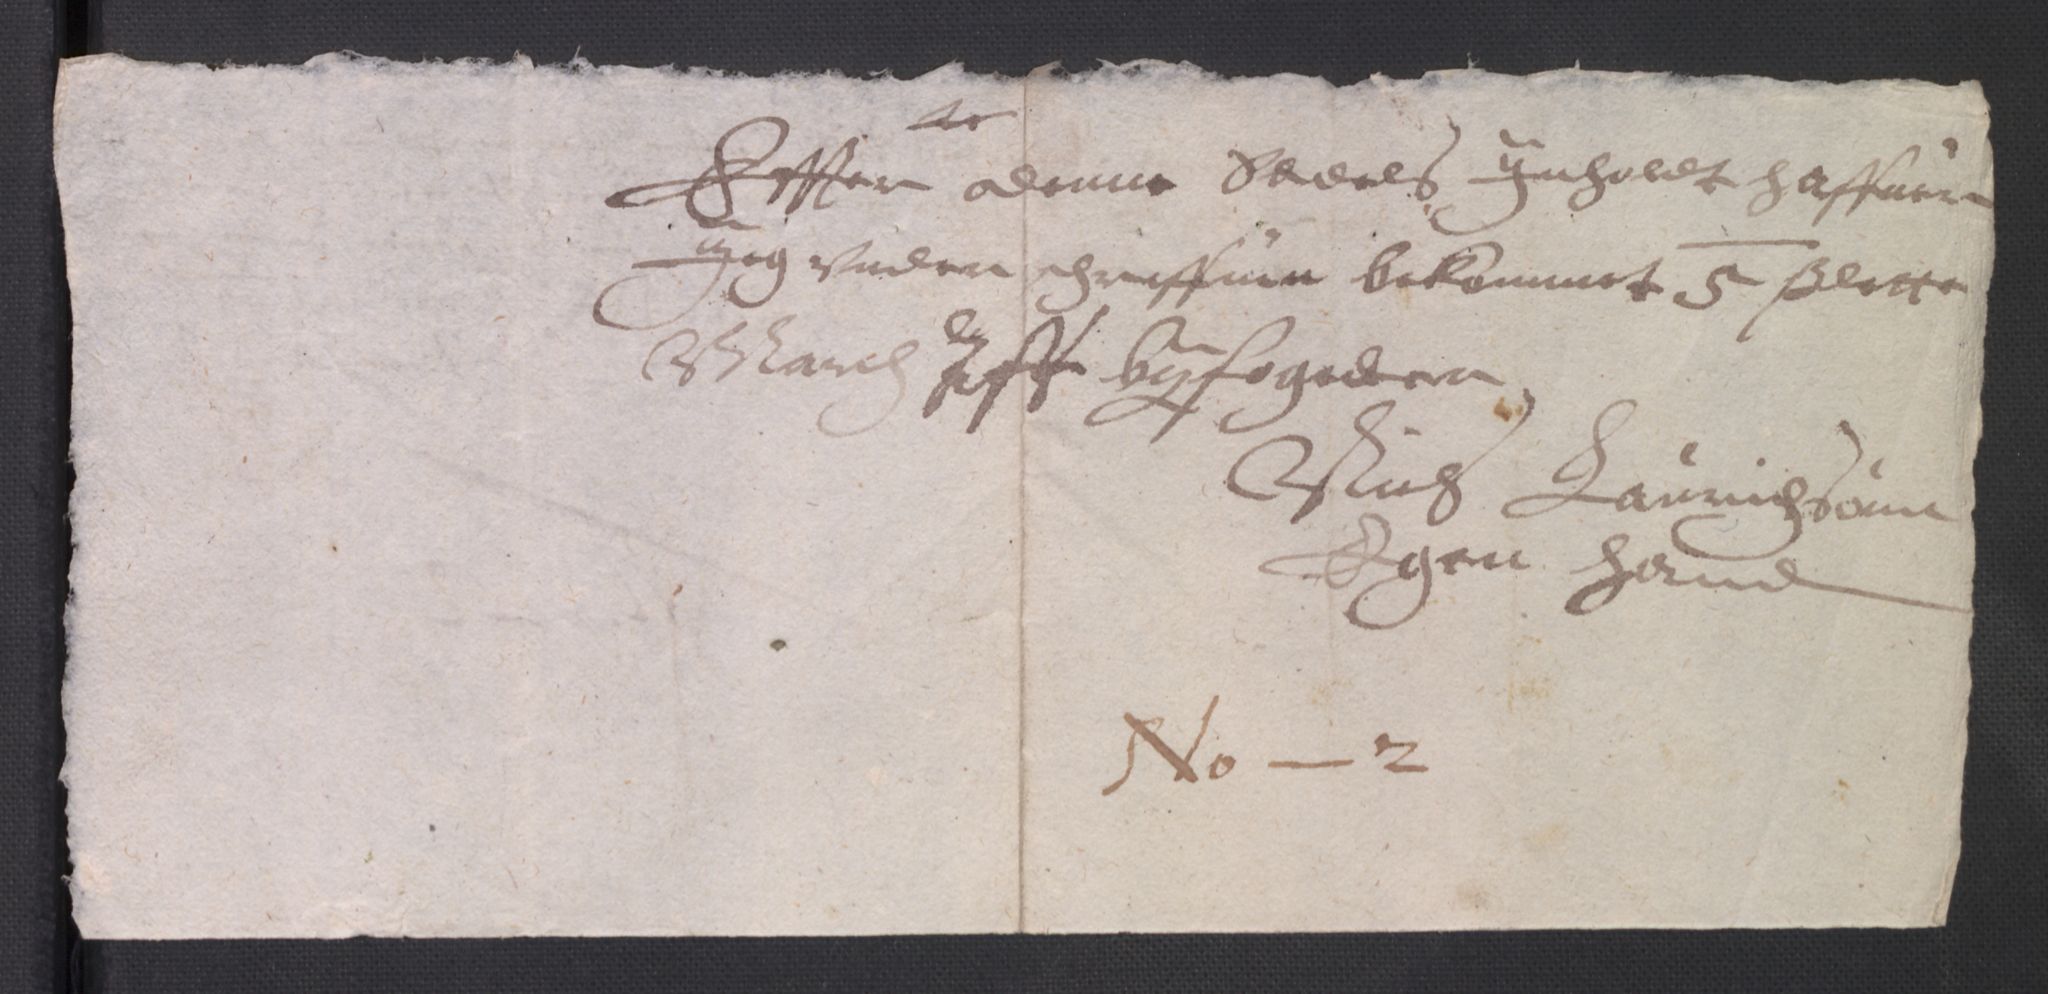 Effter denne Sedels Jnholdt haffuer
Jeg vnderschreffuin bekommet 5 slette
March Aff byfogederen
Niels Laurichsönn
Egen hand
No — 2